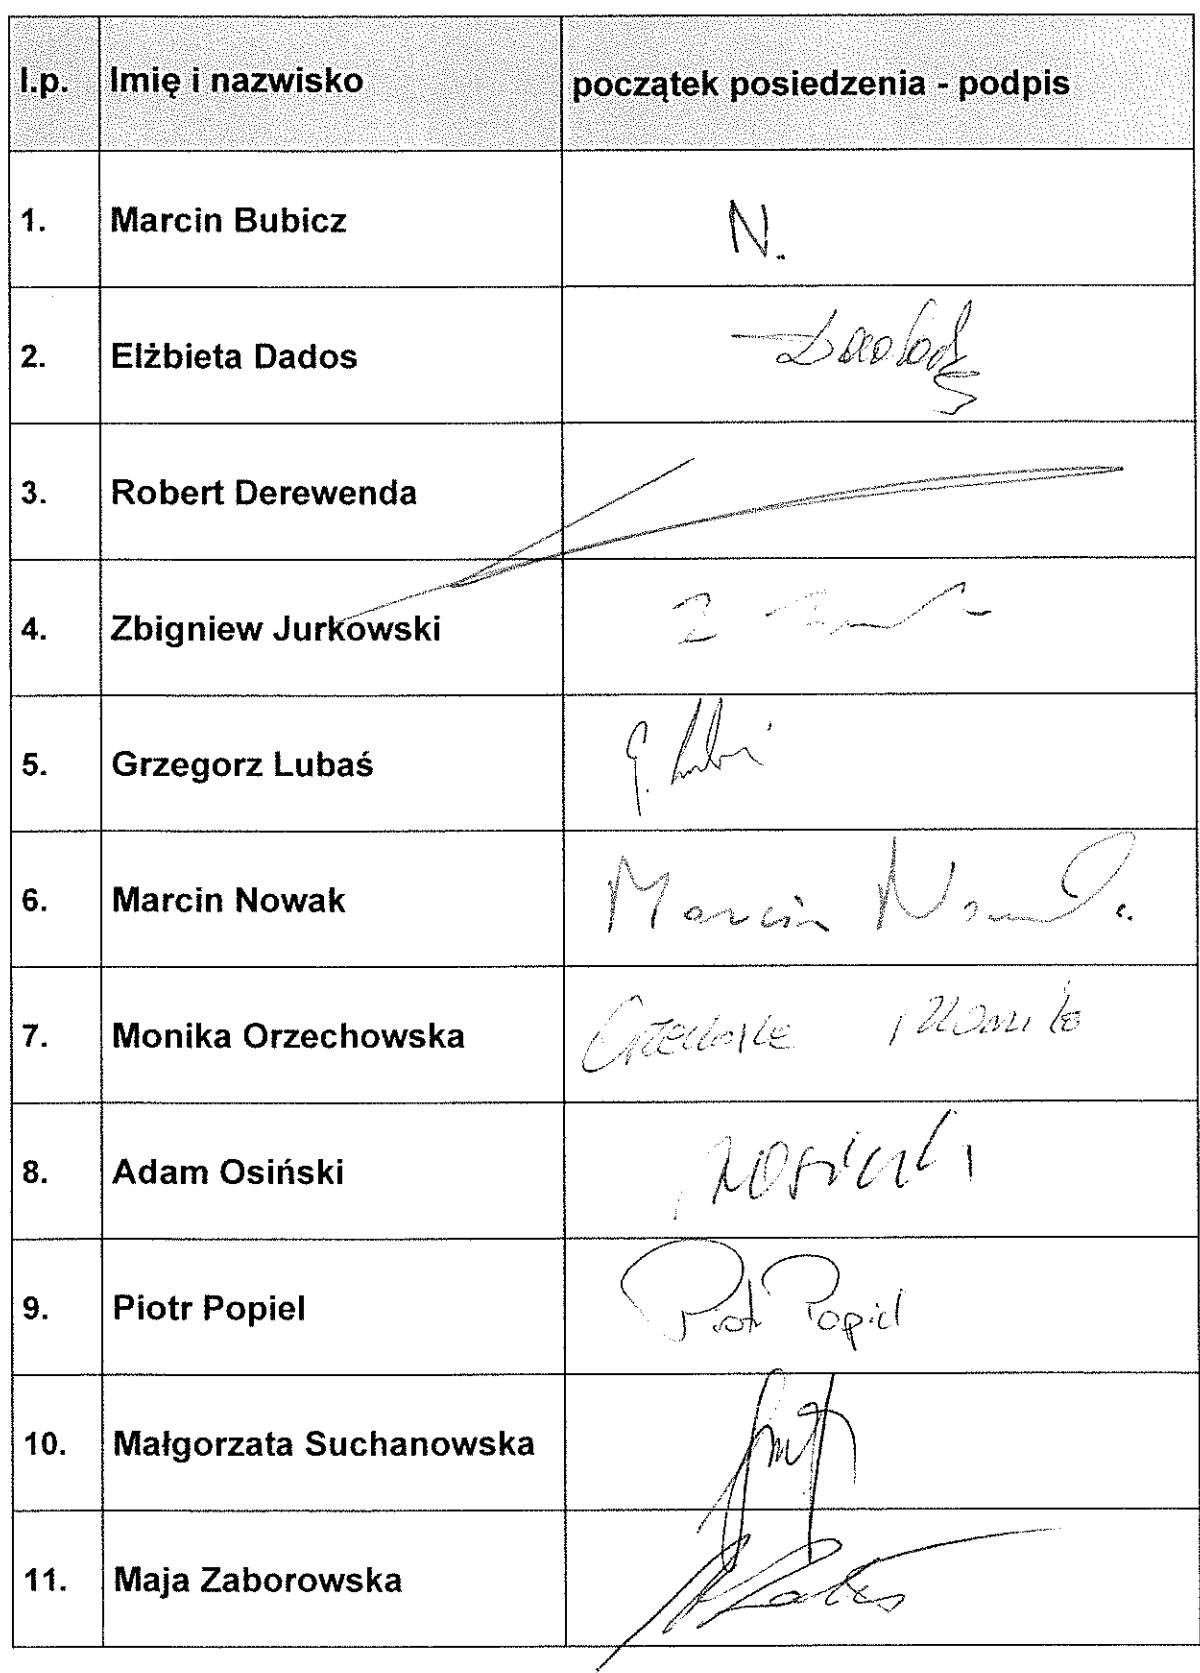 l.p. Imię i nazwisko początek posiedzenia - podpis
1. Marcin Bubicz N.
2. Elżbieta Dados
3. Robert Derewenda
4. Zbigniew Jurkowski
5. Grzegorz Lubaś
6. Marcin Nowak Marcin Nowak
7. Monika Orzechowska
8. Adam Osiński
9. Piotr Popiel Piotr Popiel
10. Małgorzata Suchanowska
11. Maja Zaborowska